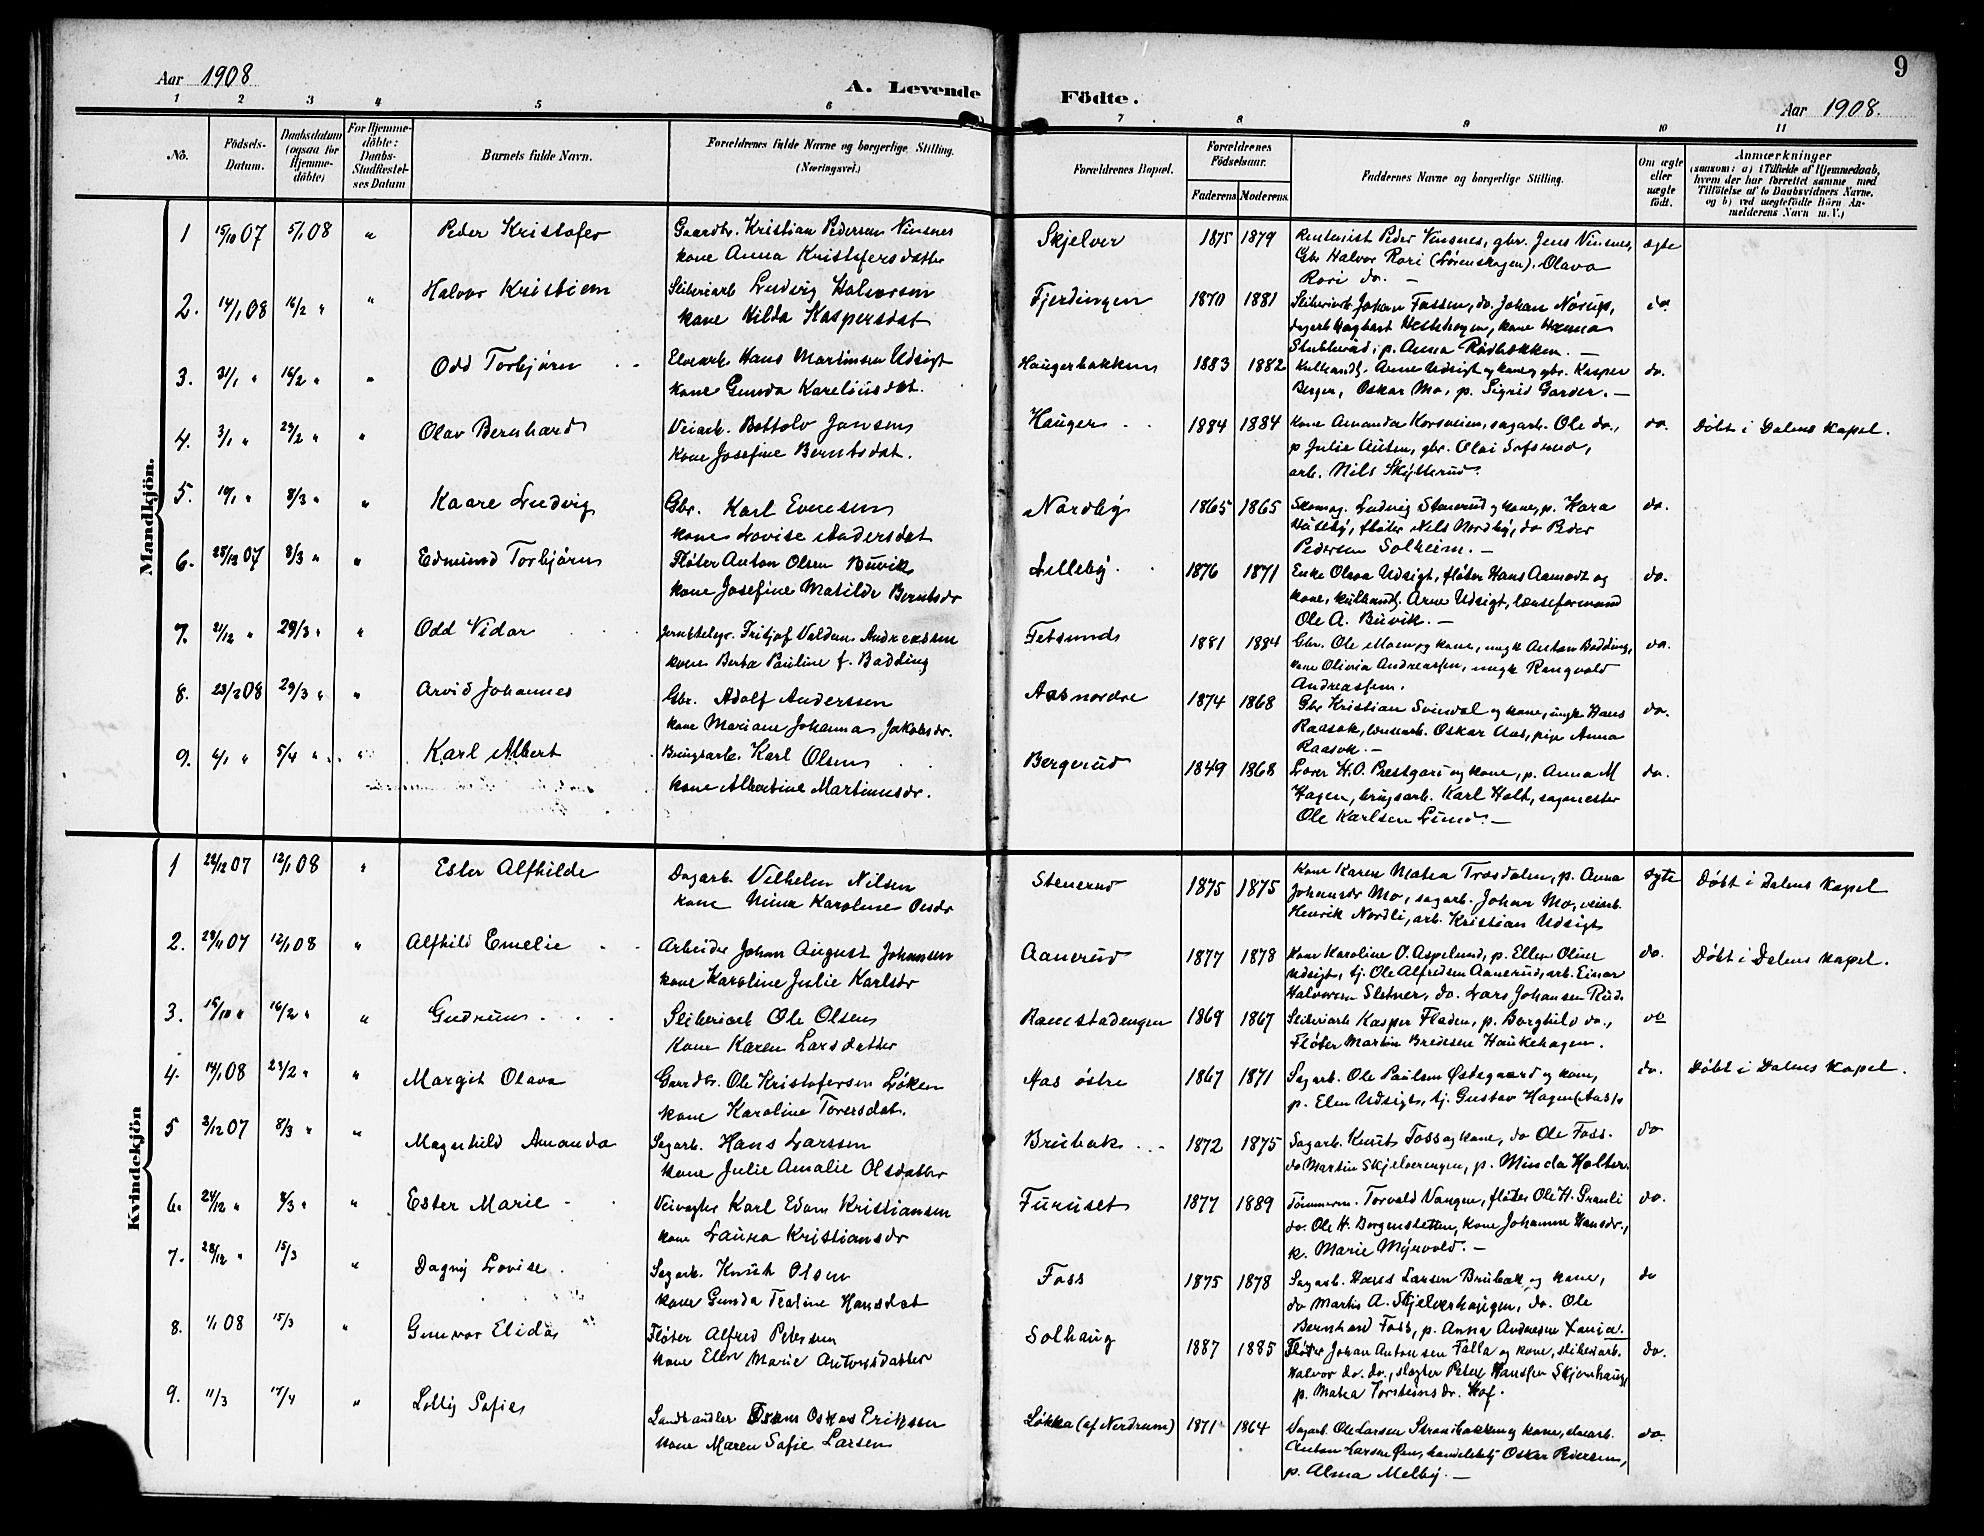 9
Aar 1908
A. Levende Födte.
Aar 1908.
1 2 3 4 5 6 7 8 9 10 11
No.
Födsels-Datum.
Daabsdatum (ogsaa for Hjemme-döbte)
For Hjemme-döbte: Daabs-Stadfæstel-ses Datum
Barnets fulde Navn.
Forældrenes fulde Navne og borgerlige Stilling. (Næringsvei.)
Forældrenes Bopæl.
Forældrenes Födselsaar.
Faderens Moderens
Faddernes Navne og borgerlige Stilling.
Om ægte eller uægte födt.
Anmærkninger
(saasom: a) i Tilfælde af Hjemmedaab, hvem der har forrettet samme med Tilföielse af to Daabsvidners Navne, og b) ved uægtefödte Börn Anmelderens Navn m. V.)
Mandkjön.
1 15/10 07 5/1 08 " Peder Kristofer Gaardbr. Kristian Pedersen Vinsnes Skjelver 1875 1879 Rentenist Peder Vinsnes, gbr. Jens Vinsnes, ægte
kone Anna Kristofersdatter Gbr Halvor Rori (Lørenskogen). Olava
Rori do. —
2. 14/1 08 16/2 " " Halvor Kristian Sliberiarb Ludvig Halvorsen Fjerdingen 1870 1881 Sliberiarb. Johan Fossen, do. Johan Nörup, do.
kone Hilda Kaspersdat dagarb Hagbart Hestehagen, kone Hanna
Stubberud, p. Anna Rødbækken. —
3. 31/1 " 16/2 " " Odd Torbjørn Elvearb Hans Martinsen Udsigt Haugerbakken 1883 1882 Kulhandl. Arne Udsigt og kone, gbr. Kasper do.
kone Gunda Kareliusdat. Berger, Oskar Mo, p. Sigrid Garder. —
4. 3/1 " 23/2 " " Olav Bernhard Veiarb. Bottolv Jensen Hauger 1884 1884 Kone Amanda Korsveien, sagarb. Ole do., do. Døbt i Dalens Kapel.
Kone Josefine Berntsdat. p Julie Auten, gbr. Olai
arb. Nils Skytterud.
5. 10/1 " 8/3 " " Kaare Ludvig Gbr. Karl Evensen Nordby 1865 1865 Skomag. Ludvig Stenerud og kone, p. Hara do.
kone Lovise Andersdat Huseby, fløter Nils Nordby, do Peder
Pedersen Solheim. —
6. 28/12 07 8/3 " " Edmund Torbjørn Fløter Anton Olsen Buvik Lilleby 1876 1871 Enke Olava Udsigt, fløter Hans Aamodt og do.
kone Josefine Matilde Berntsdr kone, kulhandl. Arne Udsigt, lænseformand
Ole A. Buvik. —
7. 21/12 " 29/3 " " Odd Vidar Jernbtelegr. Fritjof Valdem. Andreassen Fetsund 1881 1884 Gbr. Ole Moen og kone, ungk Anton Badding, do.
kone Berta Pauline f. Badding kone Olivia Andreassen, ungk Rangvald
Andreassen.
8. 23/2 08 29/3 " " Arvid Johannes Gbr. Adolf Anderssen Aas nordre 1874 1868 Gbr Kristian Svindal og kone, ungk Hans do.
kone Mariane Johanna Jakobsdr. Raasok, lensearb. Oskar Aas, pige Anna
Raasok. —
9. 6/1 " 5/4 " " Karl Albert Brugsarb. Karl Olsen Bergerud 1849 1868 Lærer H.O. Prestgard og kone, p. Anna M do.
kone Albertine Martinusdr. Hagen, brugsarb. Karl Holt, sagmester
Ole Karlsen Lund. —
Kvindekjön
1 22/12 07 12/1 08 " Ester Alfhilde Dagarb. Vilhelm Nilsen Stenerud 1875 1875 Kone Karen Matea Trosdalen, p. Anna ægte Døbt i Dalens Kapel
kone Mina Karoline Olsdr Johansdr Mo, sagarb. Johan Mo, veiarb.
Henrik Nordli, arb. Kristian Udsigt
2. 23/11 07 12/1 08 " Alfhild Emelie Arbeider Johan August Johansen Aanerud 1877 1878 Kone Karoline O. Aspelund, p. Ellen Oline do. Døbt i Dalens Kapel.
kone Karoline Julie Karlsdr Udsigt, tj. Ole Alfredsen Aanerud, arb. Einar
Halvorsen Sletner, do. Lars Johansen Rud.
3. 15/10 " 16/2 " " Gudrun Sliberiarb Ole Olsen Ramstadengen 1869 1867 Sliberiarb Kasper Fladen, p. Borghild do., do
Kone Karen Larsdatter Fløter Martin Bredesen Haukehagen.
4. 14/1 08 23/2 " " Margit Olava Gaardbr. Ole Kristofersen Løken Aas østre 1867 1871 Sagarb. Ole Paulsen Østegaard og kone, do. Døbt i Dalens Kapel.
kone Karoline Toversdat. p. Elen Udsigt, tj. Gustav Hagen
5 3/12 07 8/3 " " Magnhild Amanda Sagarb. Hans Larssen Brubak 1872 1875 Sagarb. Knut Foss og kone, do Ole Foss. do
kone Julie Amalie Olsdatter do Martin Skjelverengen, p. Minda Holter.
6. 24/12 " 8/3 " " Ester Marie Veivogter Karl Edvin Kristiansen Furuset 1877 1889 Tömmerm. Torvald Vangen, fløter Ole H. Granli do.
kone Laura Kristiansdr do. Ole H. Borgenstetten, kone Johanne Hansdr.,
k. Marie Myrvold. —
7. 28/12 " 15/3 " Dagny Lovise Sagarb. Knut Olsen Foss 1875 1878 Sagarb. Hans Larsen Brubak og kone, do
kone Gunda Tealine Hansdat do Martin A. Skjelverhaugen, do. Ole
Bernhard Foss, p. Anna Andresne
8. 1/1 08 15/3 " Gunvor Elida Fløter Alfred Petersen Solhaug 1887 1885 Fløter Johan Antonsen Falla og kone, sliberiarb. do.
kone Ellen Marie Antonsdatter Halvor do. do., slagter Peter Hanssen Skjønhaug
p. Matea Torsteinsdr. Hof.
9. 11/3 17/4 " Lolly Sofie Landhandler Frans Oskar Eriksen Løkka (af Nerdrum) 1871 1864 Dagarb. Ole Larsen Strandbakken og kone, elvearb. do.
Kone Maren Sofie Larsen Anton Larsen Øen, handelsbtj Oskar Pedersen,
p. Alma Melby. —